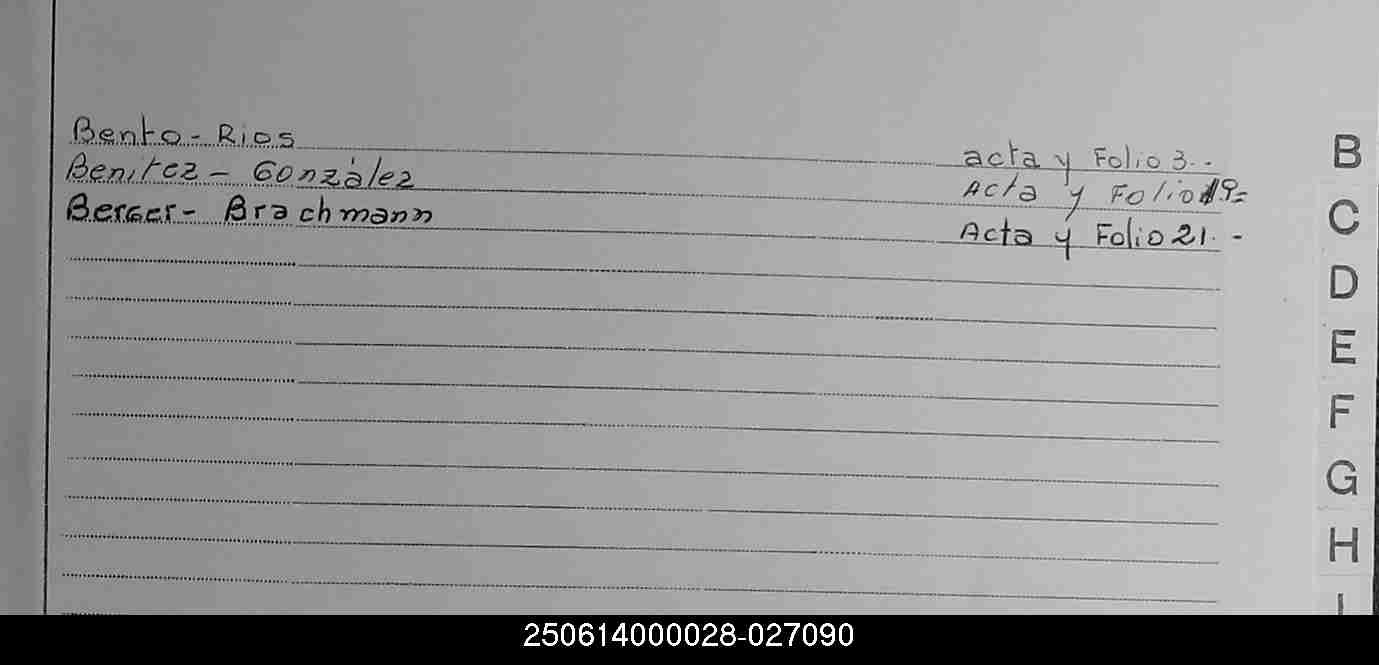 Bento - Rios acta y Folio 3. -
Benitez - González Acta y Folio 19=
Berger - Brachmann Acta y Folio 21. -
B
C
D
E
F
G
H
I
250614000028-027090